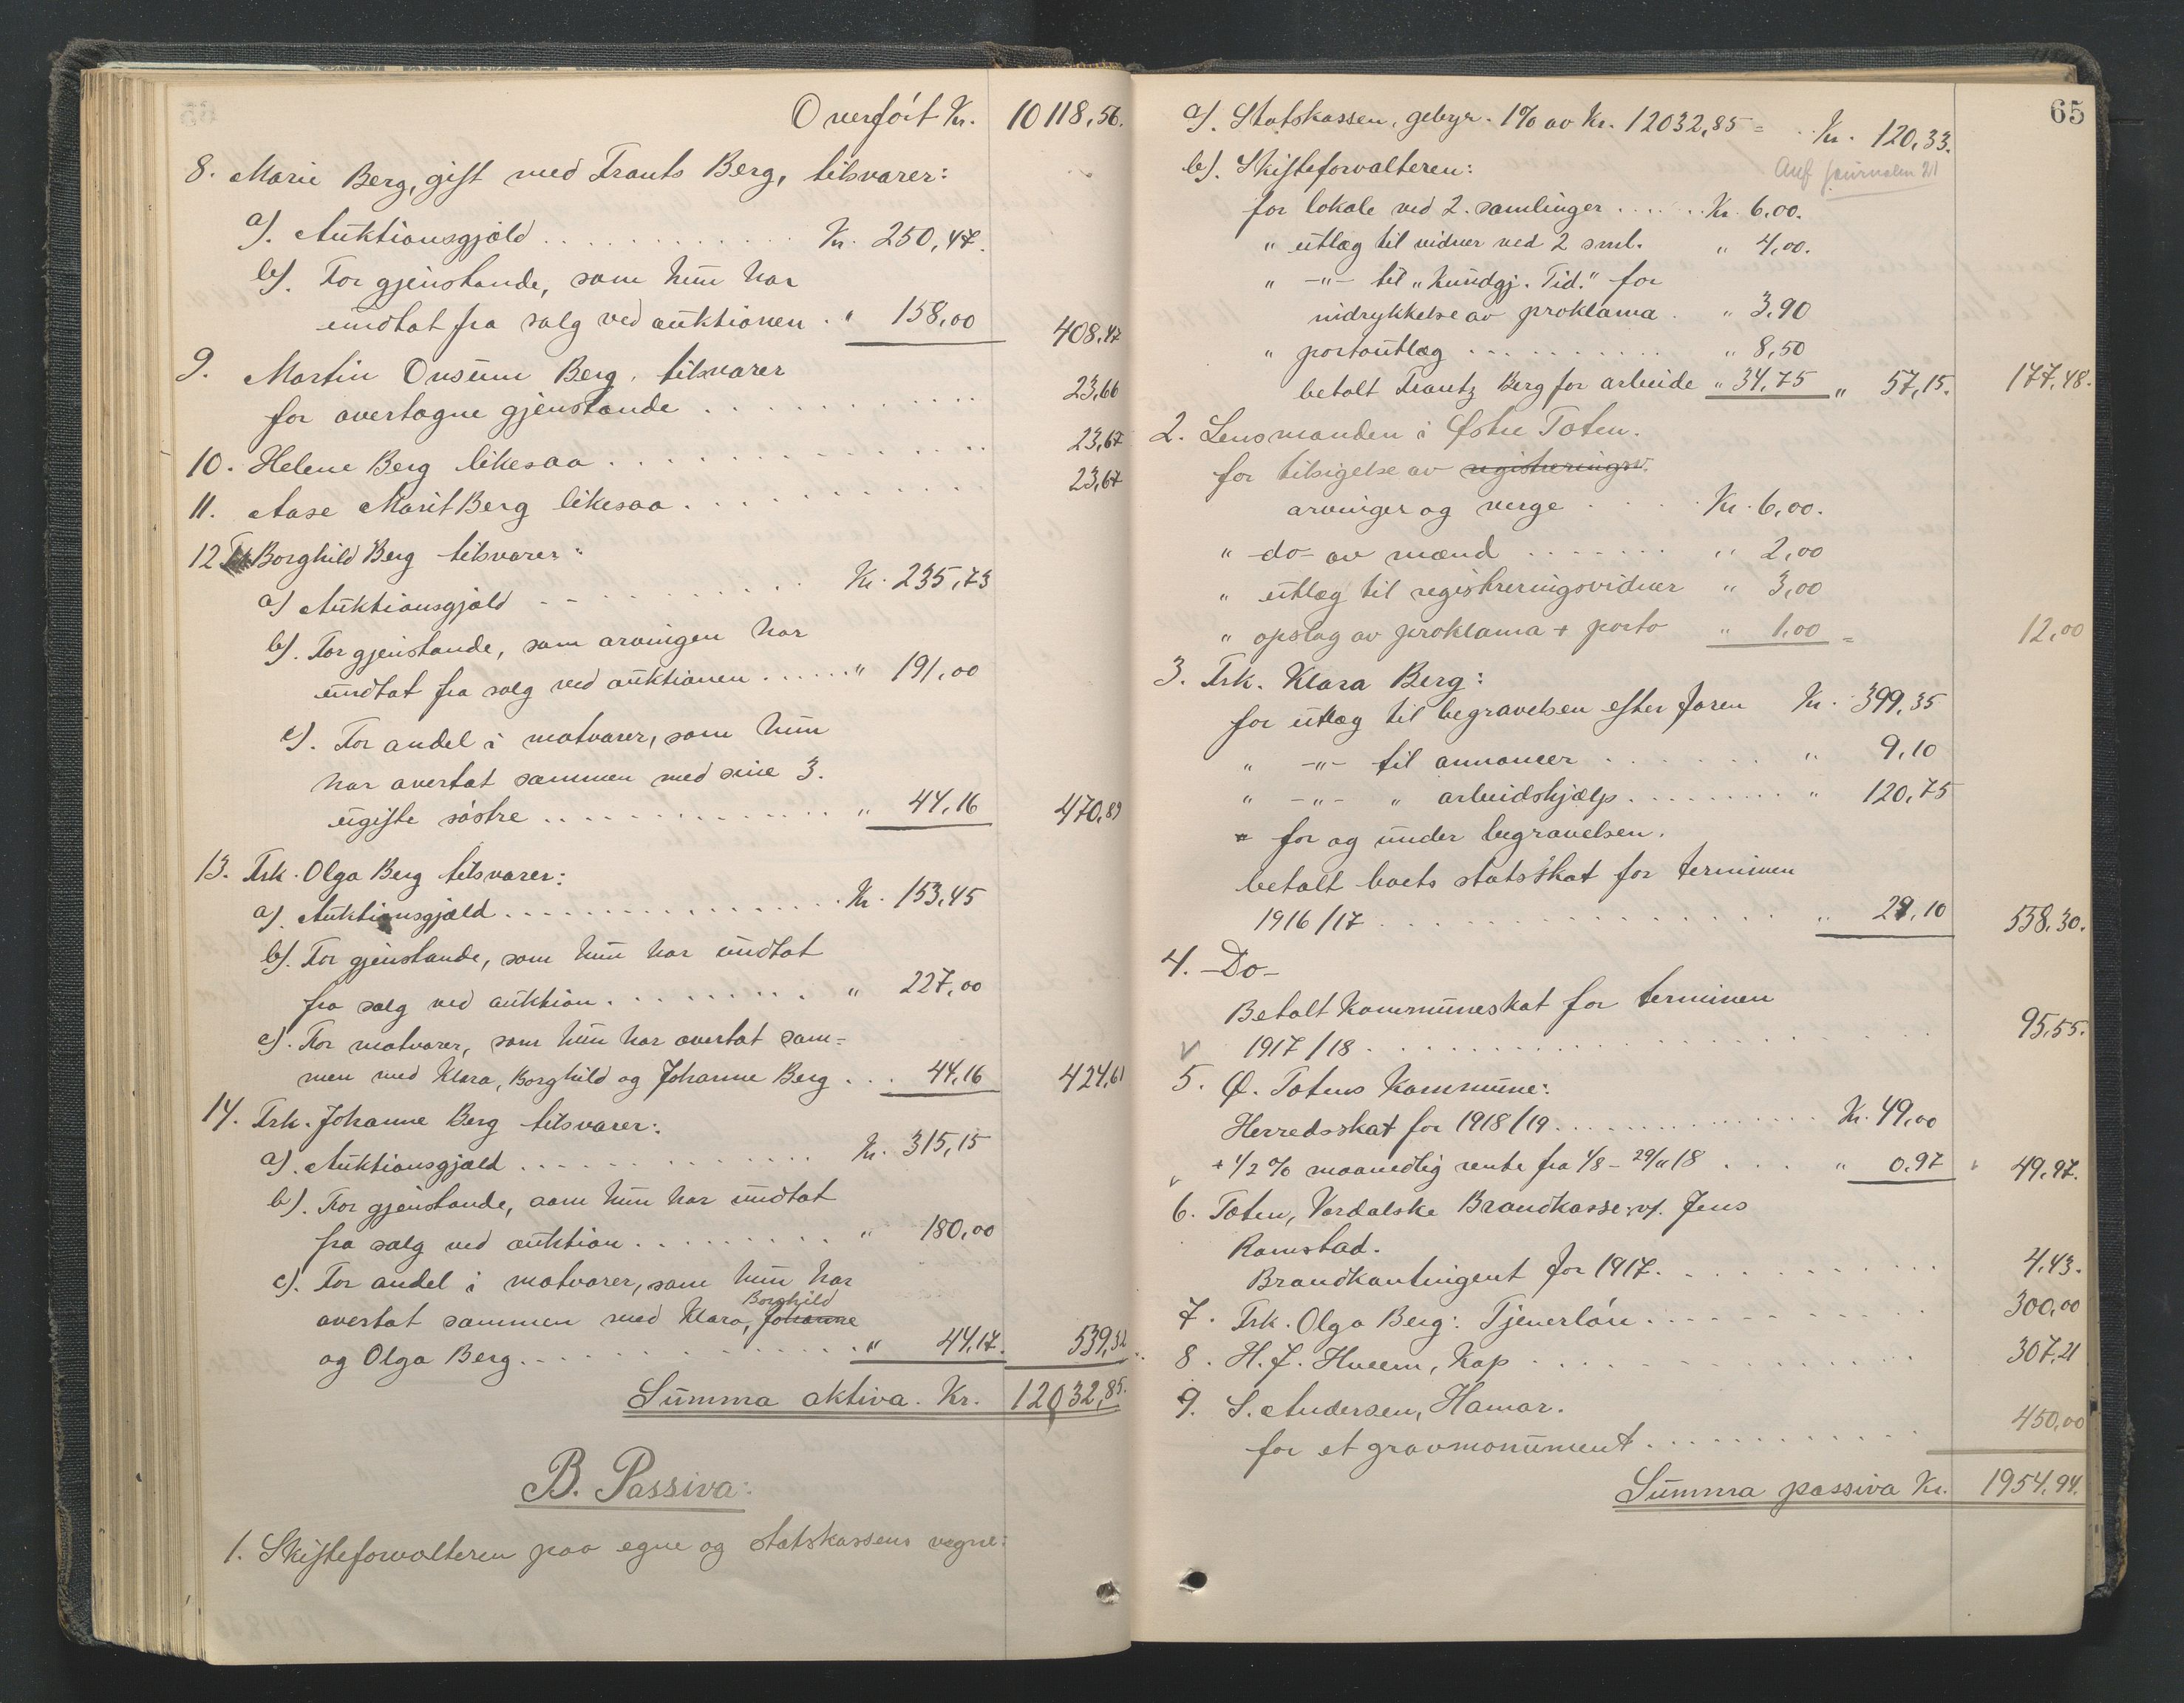 Overført Kr. 10118,56.
8. Marie Berg, gift med Frants Berg, tilsvarer:
a). Auktionsgjæld . . . . Kr. 250,47.
b). For gjenstande, som hun har
undtat fra salg ved auktionen . " 158,00 408,47
9. Martin Onsum Berg, tilsvarer
for overtagne gjenstande . . . . 23,66
10. Helene Berg likesaa . . . . 23,67
11. Aase Marit Berg likesaa . . . . 23,67
12 Borghild Berg tilsvarer:
a) Auktionsgjæld . . . . Kr. 235,73
b). For gjenstande, som arvingen har
undtat fra salg ved auktionen . . . . " 191,00
c). For andel i matvarer, som hun
har overtat sammen med sine 3.
ugifte søstre . . . . " 44,16 470,89
13. Frk. Olga Berg tilsvarer:
a). Auktionsgjæld . . . . Kr. 153,45
b). For gjenstande, som hun har undtat
fra salg ved auktion . . . . " 227,00
c). For matvarer, som hun har overtat sam=
men med Klara, Borghild og Johanne Berg . . . 44,16 424,61
14. Frk. Johanne Berg tilsvarer:
a). Auktionsgjæld . . . . Kr. 315,15
b). For gjenstande, som hun har undtat
fra salg ved auktion . . . . " 180,00
c). For andel i matvarer, som hun har
Borghild
overtat sammen med Klara, Johanne
og Olga Berg . . . . " 44,17. 539,32
Summa aktiva. Kr. 12032,85.
B. Passiva:
1. Skifteforvalteren paa egne og statskassens vegne:
65
a). Statskassen, gebyr. 1% av Kr. 12032,85 = . . Kr. 120,33.
journalen 21
b). Skifteforvalteren:
for lokale ved 2. samlinger . . . . Kr. 6,00.
" utlæg til vidner ved 2 sml. " 4,00.
" -"- til "Kundgj. Tid." for
indrykkelse av proklama . " 3,90
" portoutlæg . . . . " 8,50
betalt Frantz Berg for arbeide " 34,75 " 57,15. 177,48.
2. Lensmanden i Østre Toten.
for tilsigelse av registreringsv.
arvinger og verge . . . Kr. 6,00.
" do- av mænd . . . . " 2,00
" utlæg til registreringsvidner " 3,00
" opslag av proklama + porto " 1,00 = 12,00
3. Frk. Klara Berg:
for utlæg til begravelsen efter faren Kr. 399,35
" -"- til annoncer . . . . " 9,10
" -"- " arbeidshjælp . . . . " 120,75
for og under begravelsen.
betalt boets statsskat for terminen
1916/17 . . . . " 29,10 558,30.
4. -Do-
Betalt Kommuneskat for terminen
1917/18 . . . . 95,55.
5. Ø. Totens Kommune:
Herredsskat for 1918/19 . . . . Kr. 49,00
+ 1/2 % maanedlig rente fra 1/8 - 29/11 18 . . . " 0,97 49,97.
6. Toten, Vardalske Brandkasse v/. Jens
Ramstad.
Brandkontingent for 1917. . . . 4,43.
7. Frk. Olga Berg: Tjenerløn . . . . 300,00
8. H. J. Hveem, Kap . . . . 307,21
9. S. Andersen, Hamar.
for et gravmonument . . . . 450,00
Summa passiva Kr. 1954,94.